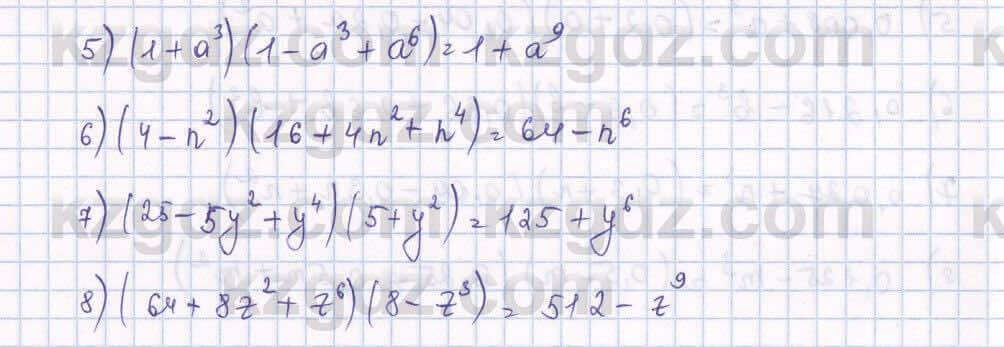 5) (1 + a³)(1 - a³ + a⁶) = 1 + a⁹
6) (4 - n²)(16 + 4n² + n⁴) = 64 - n⁶
7) (25 - 5y² + y⁴)(5 + y²) = 125 + y⁶
8) (64 + 8z² + z⁶)(8 - z³) = 512 - z⁹
kzgdz.com
kzgdz.com
kzgdz.com
kzgdz.com